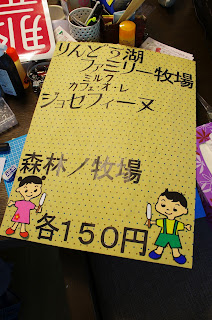 りんどう湖
ファミリー牧場
ミルク
カフェ・オ・レ
ジョセフィーヌ
森林ノ牧場
各150円